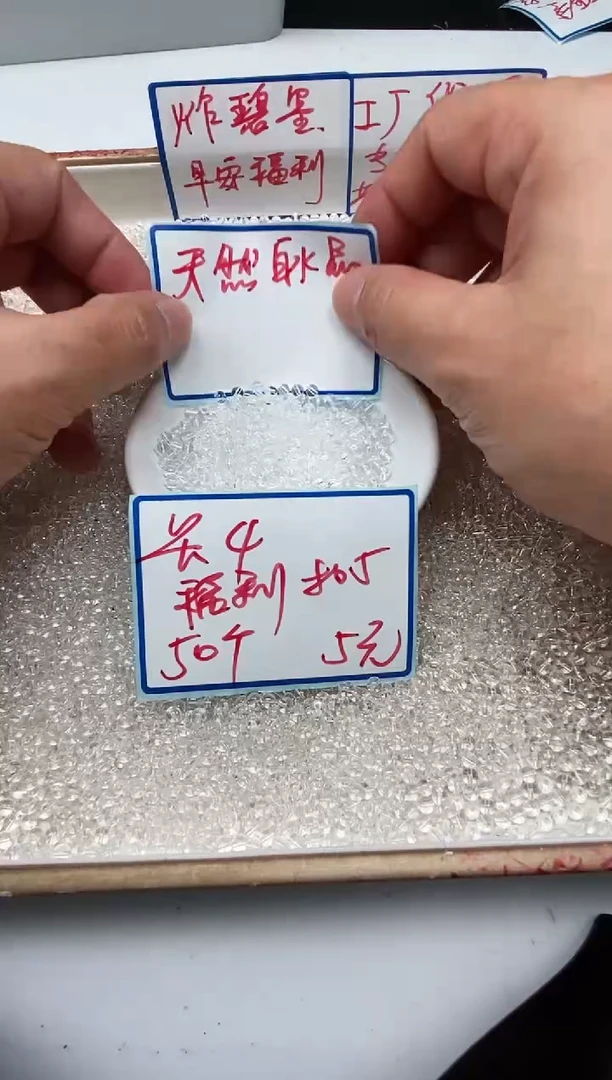 炸碧玺、
早安福利
工厂
天然白水晶
关4
福利 拍5
50个 5元